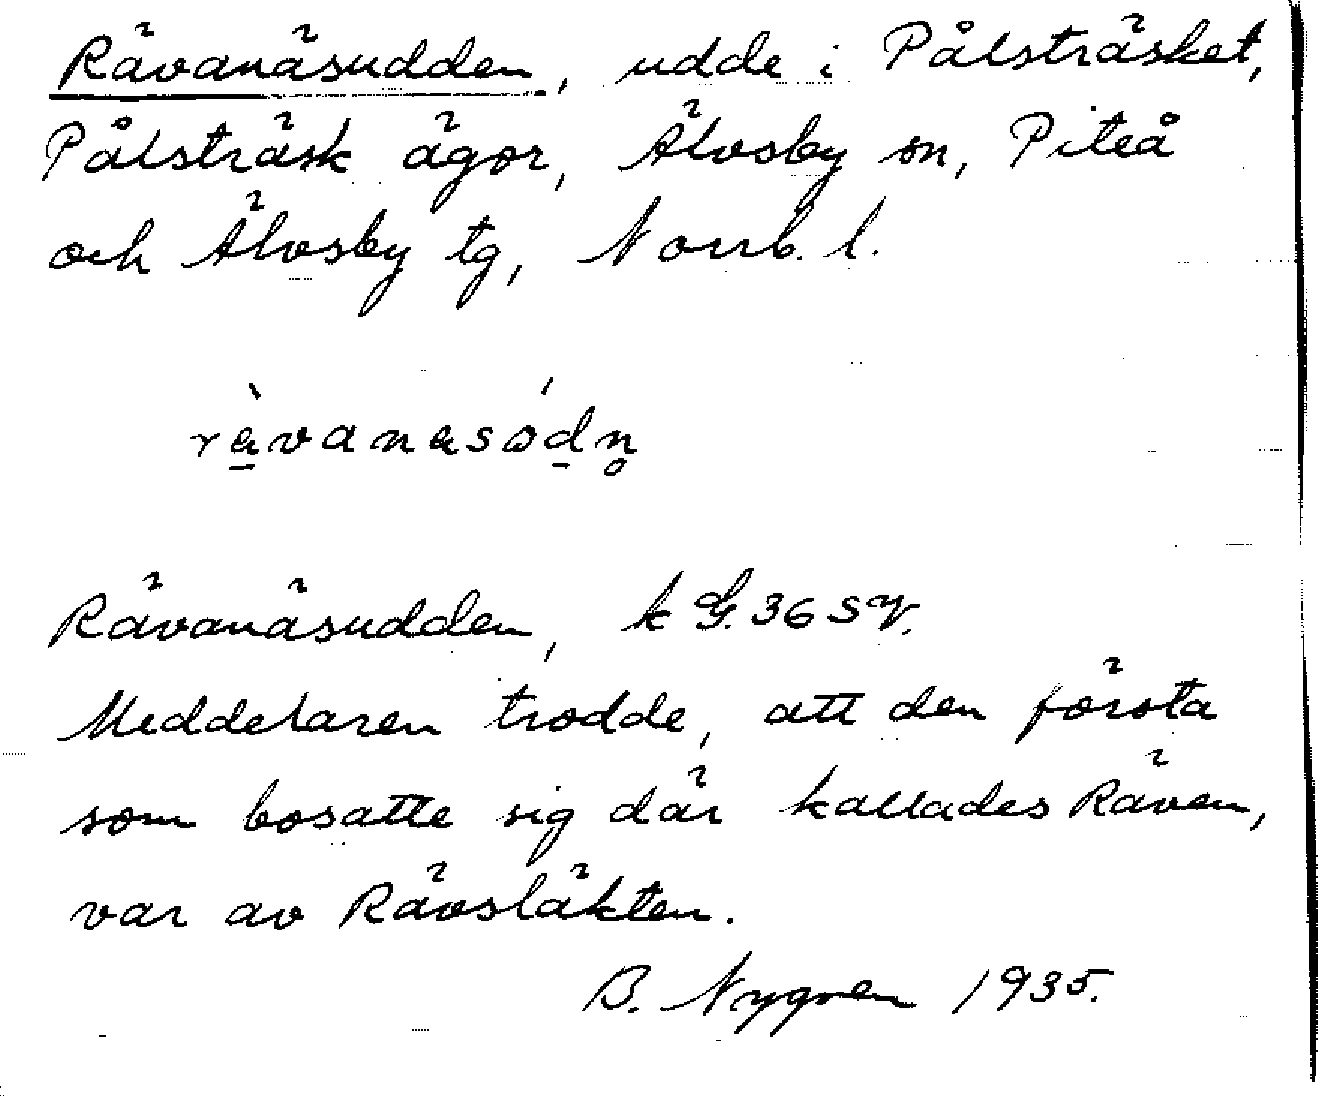 Rävanäsudden, udde i Pålsträsket,
Pålsträsk ägor, Älvsby sn, Piteå
och Älvsby tg, Norrb. l.
rävanäsódn̥
Rävanäsudden, k G. 36 SV.
Meddelaren trodde, att den första
som bosatte sig där kallades Räven,
var av Rävsläkten.
B. Nygren 1935.